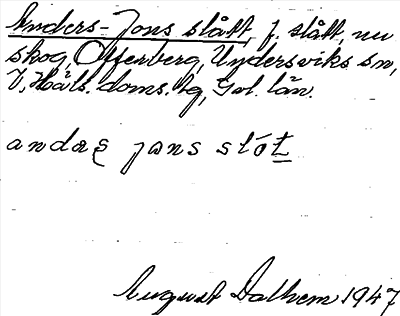 Anders-Jons slått, f. slått, nu
skog, Offerberg, Undersviks sn,
V. Häls. doms. tg, Gvl. län.
andaʂ jɷns slót
August Dalhem 1947